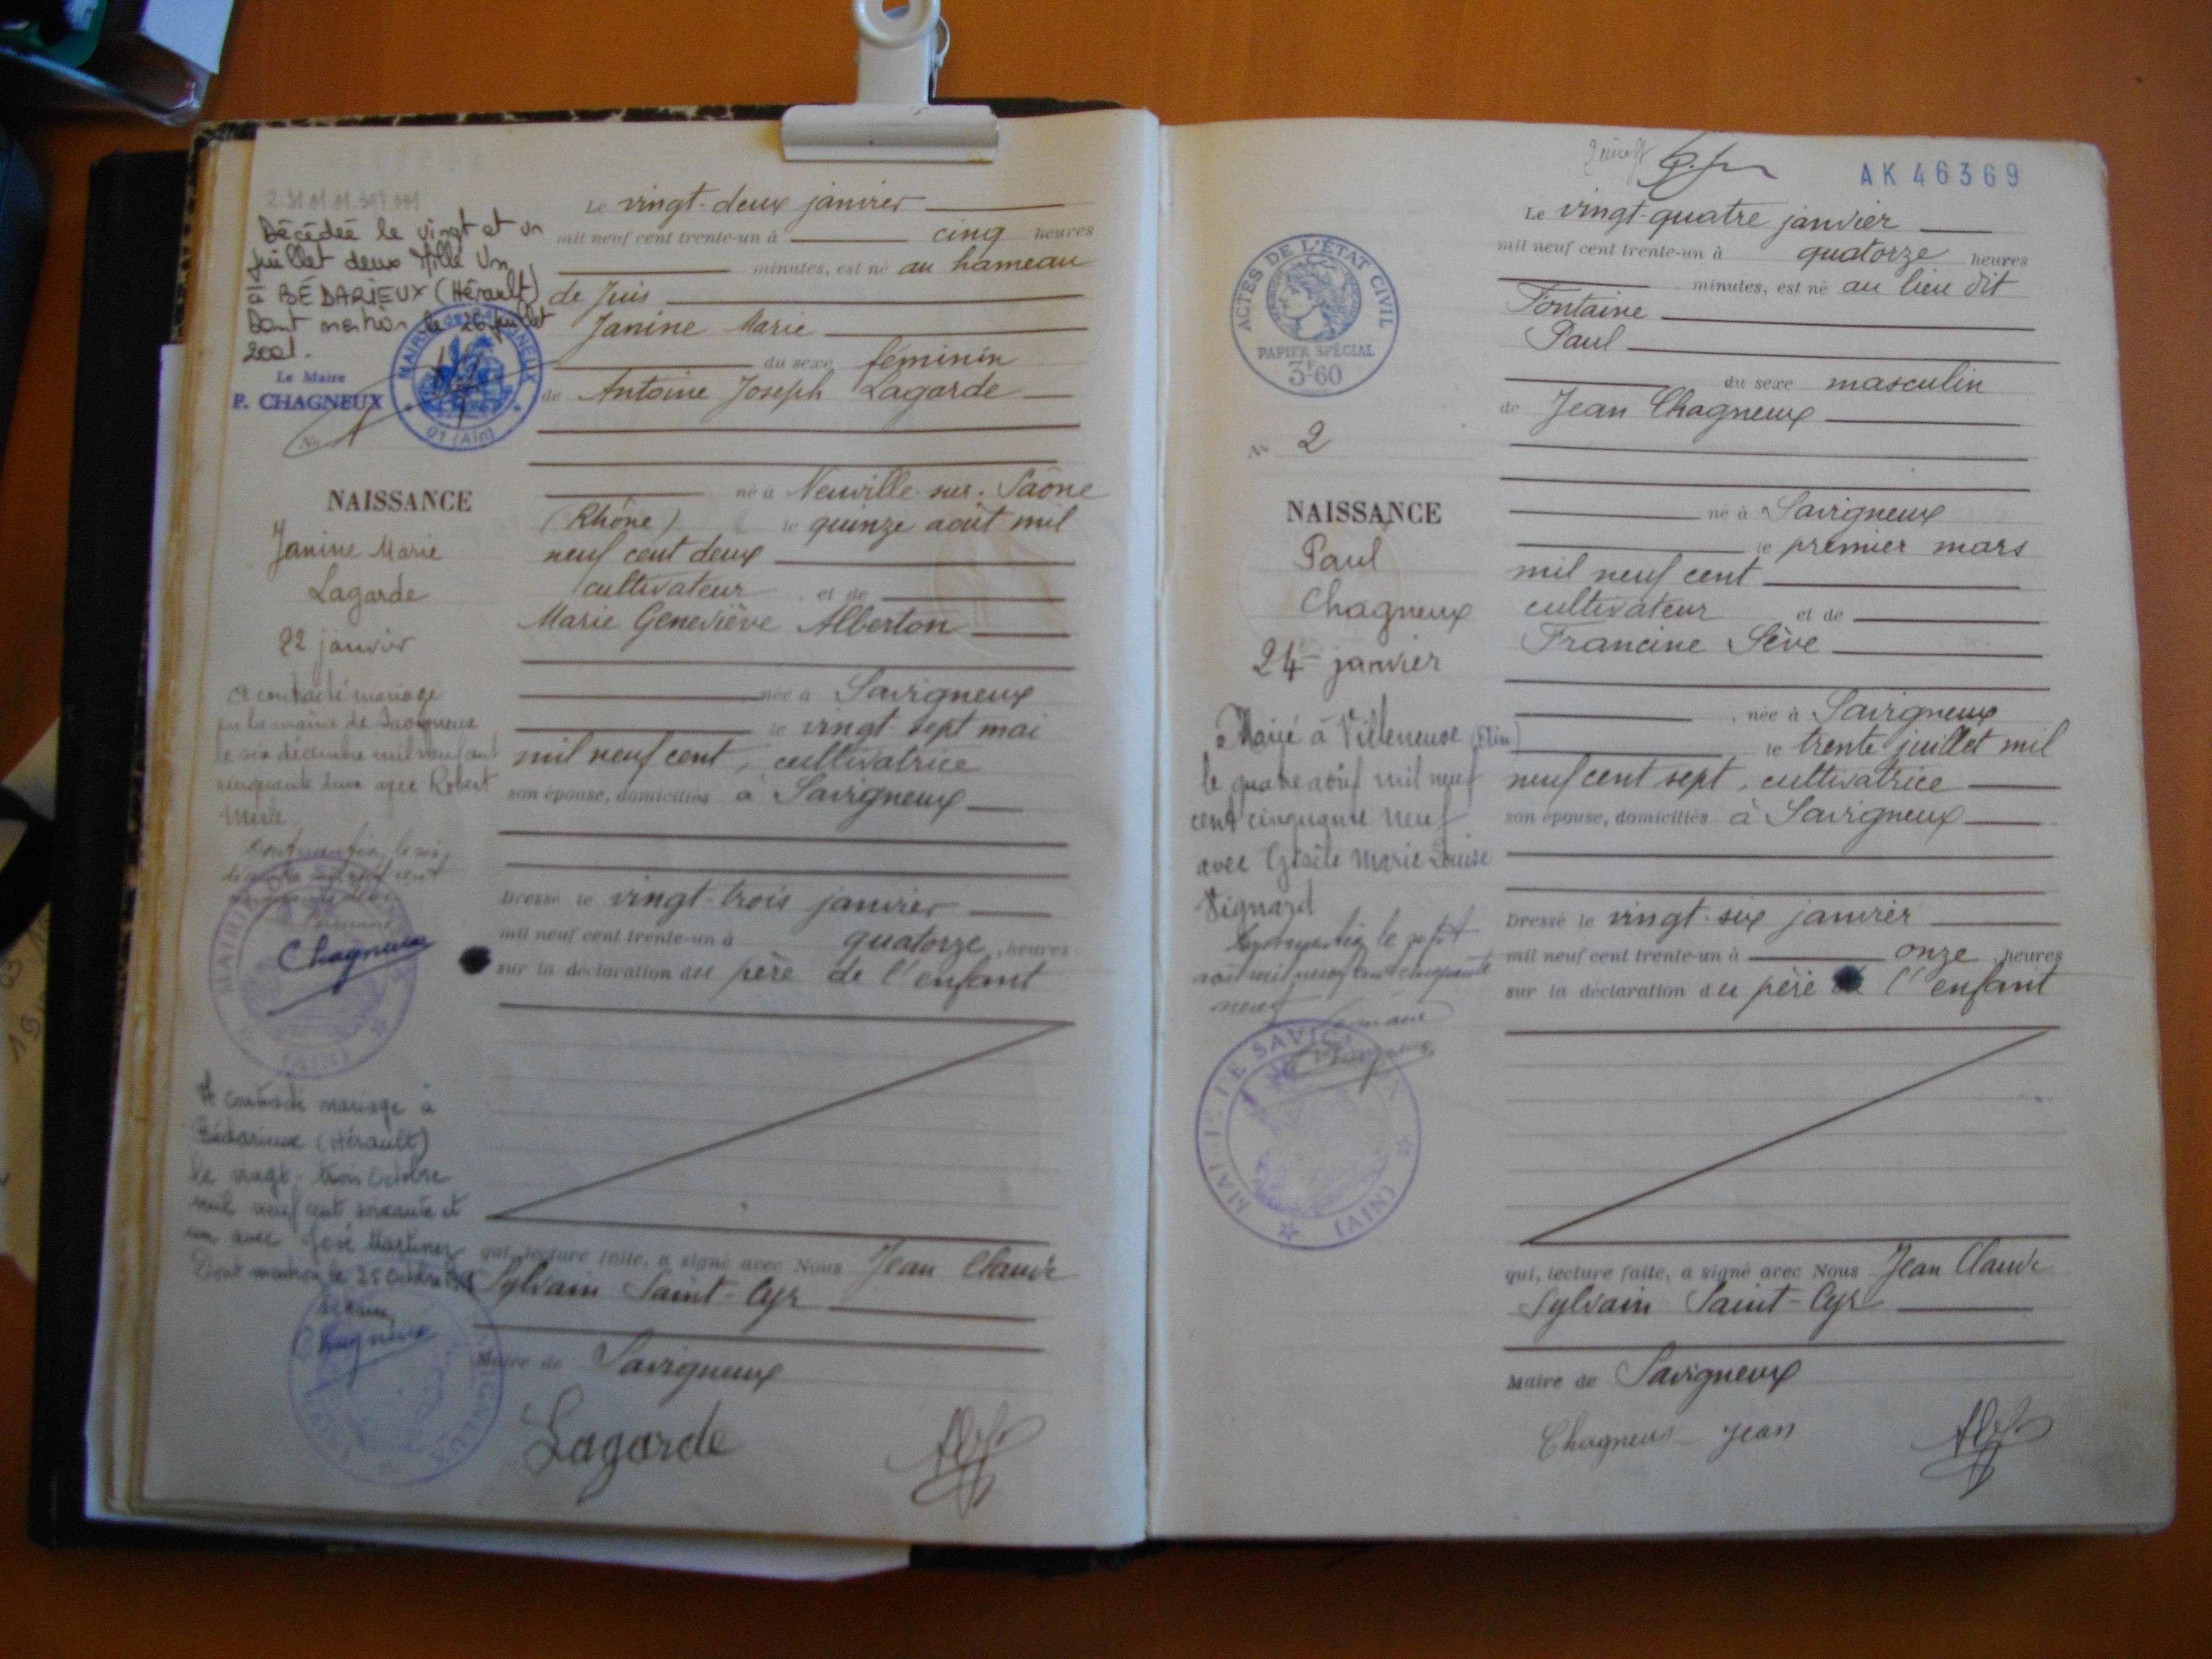 Décédée le vingt et un
juillet deux Mille Un
à BÉDARIEUX (Hérault)
Dont mention le 26 juillet
2001.
Le Maire
P. CHAGNEUX
MAIRIE DE SAVIGNEUX
01 (Ain)
No
NAISSANCE
Janine Marie
Lagarde
22 janvier
a contracté mariage
en la mairie de Savigneux
le six décembre mil neuf cent
cinquante deux avec Robert
Merle
Dont mention le six
Chagneux
MAIRIE DE
(AIN)
A contracté mariage à
Bédarieux (Hérault)
le vingt-trois Octobre
mil neuf cent soixante et
un avec José Martinez
Dont mention le 25 Octobre
Chagneux
Le vingt-deux janvier
mil neuf cent trente-un à cinq heures
minutes, est né au hameau
de Juis
Janine Marie
du sexe féminin
de Antoine Joseph Lagarde
né à Neuville-sur-Saône
(Rhône) le quinze août mil
neuf cent deux
cultivateur, et de
Marie Geneviève Alberton
née à Savigneux
le vingt-sept mai
mil neuf cent, cultivatrice
son épouse, domiciliés à Savigneux
Dressé le vingt-trois janvier
mil neuf cent trente-un à quatorze heures
sur la déclaration du père de l'enfant
qui, lecture faite, a signé avec Nous Jean Claude
Sylvain Saint-Cyr
Maire de Savigneux
Lagarde
AK 46369
ACTES DE L'ÉTAT CIVIL
PAPIER SPÉCIAL
3F60
No 2
NAISSANCE
Paul
Chagneux
24 janvier
Marié à Villeneuve (Ain)
le quatre août mil neuf
cent cinquante neuf
avec Gisèle Marie Louise
Vignard
Dont mention le sept
août mil neuf cent cinquante
neuf
Le maire
Chagneux
MAIRIE DE SAVIGNEUX
(AIN)
Le vingt-quatre janvier
mil neuf cent trente-un à quatorze heures
minutes, est né au lieu dit
Fontaine
Paul
du sexe masculin
de Jean Chagneux
né à Savigneux
le premier mars
mil neuf cent
cultivateur et de
Francine Sève
, née à Savigneux
le trente juillet mil
neuf cent sept, cultivatrice
son épouse, domiciliés à Savigneux
Dressé le vingt-six janvier
mil neuf cent trente-un à onze heures
sur la déclaration du père de l'enfant
qui, lecture faite, a signé avec Nous Jean Claude
Sylvain Saint-Cyr
Maire de Savigneux
Chagneux Jean